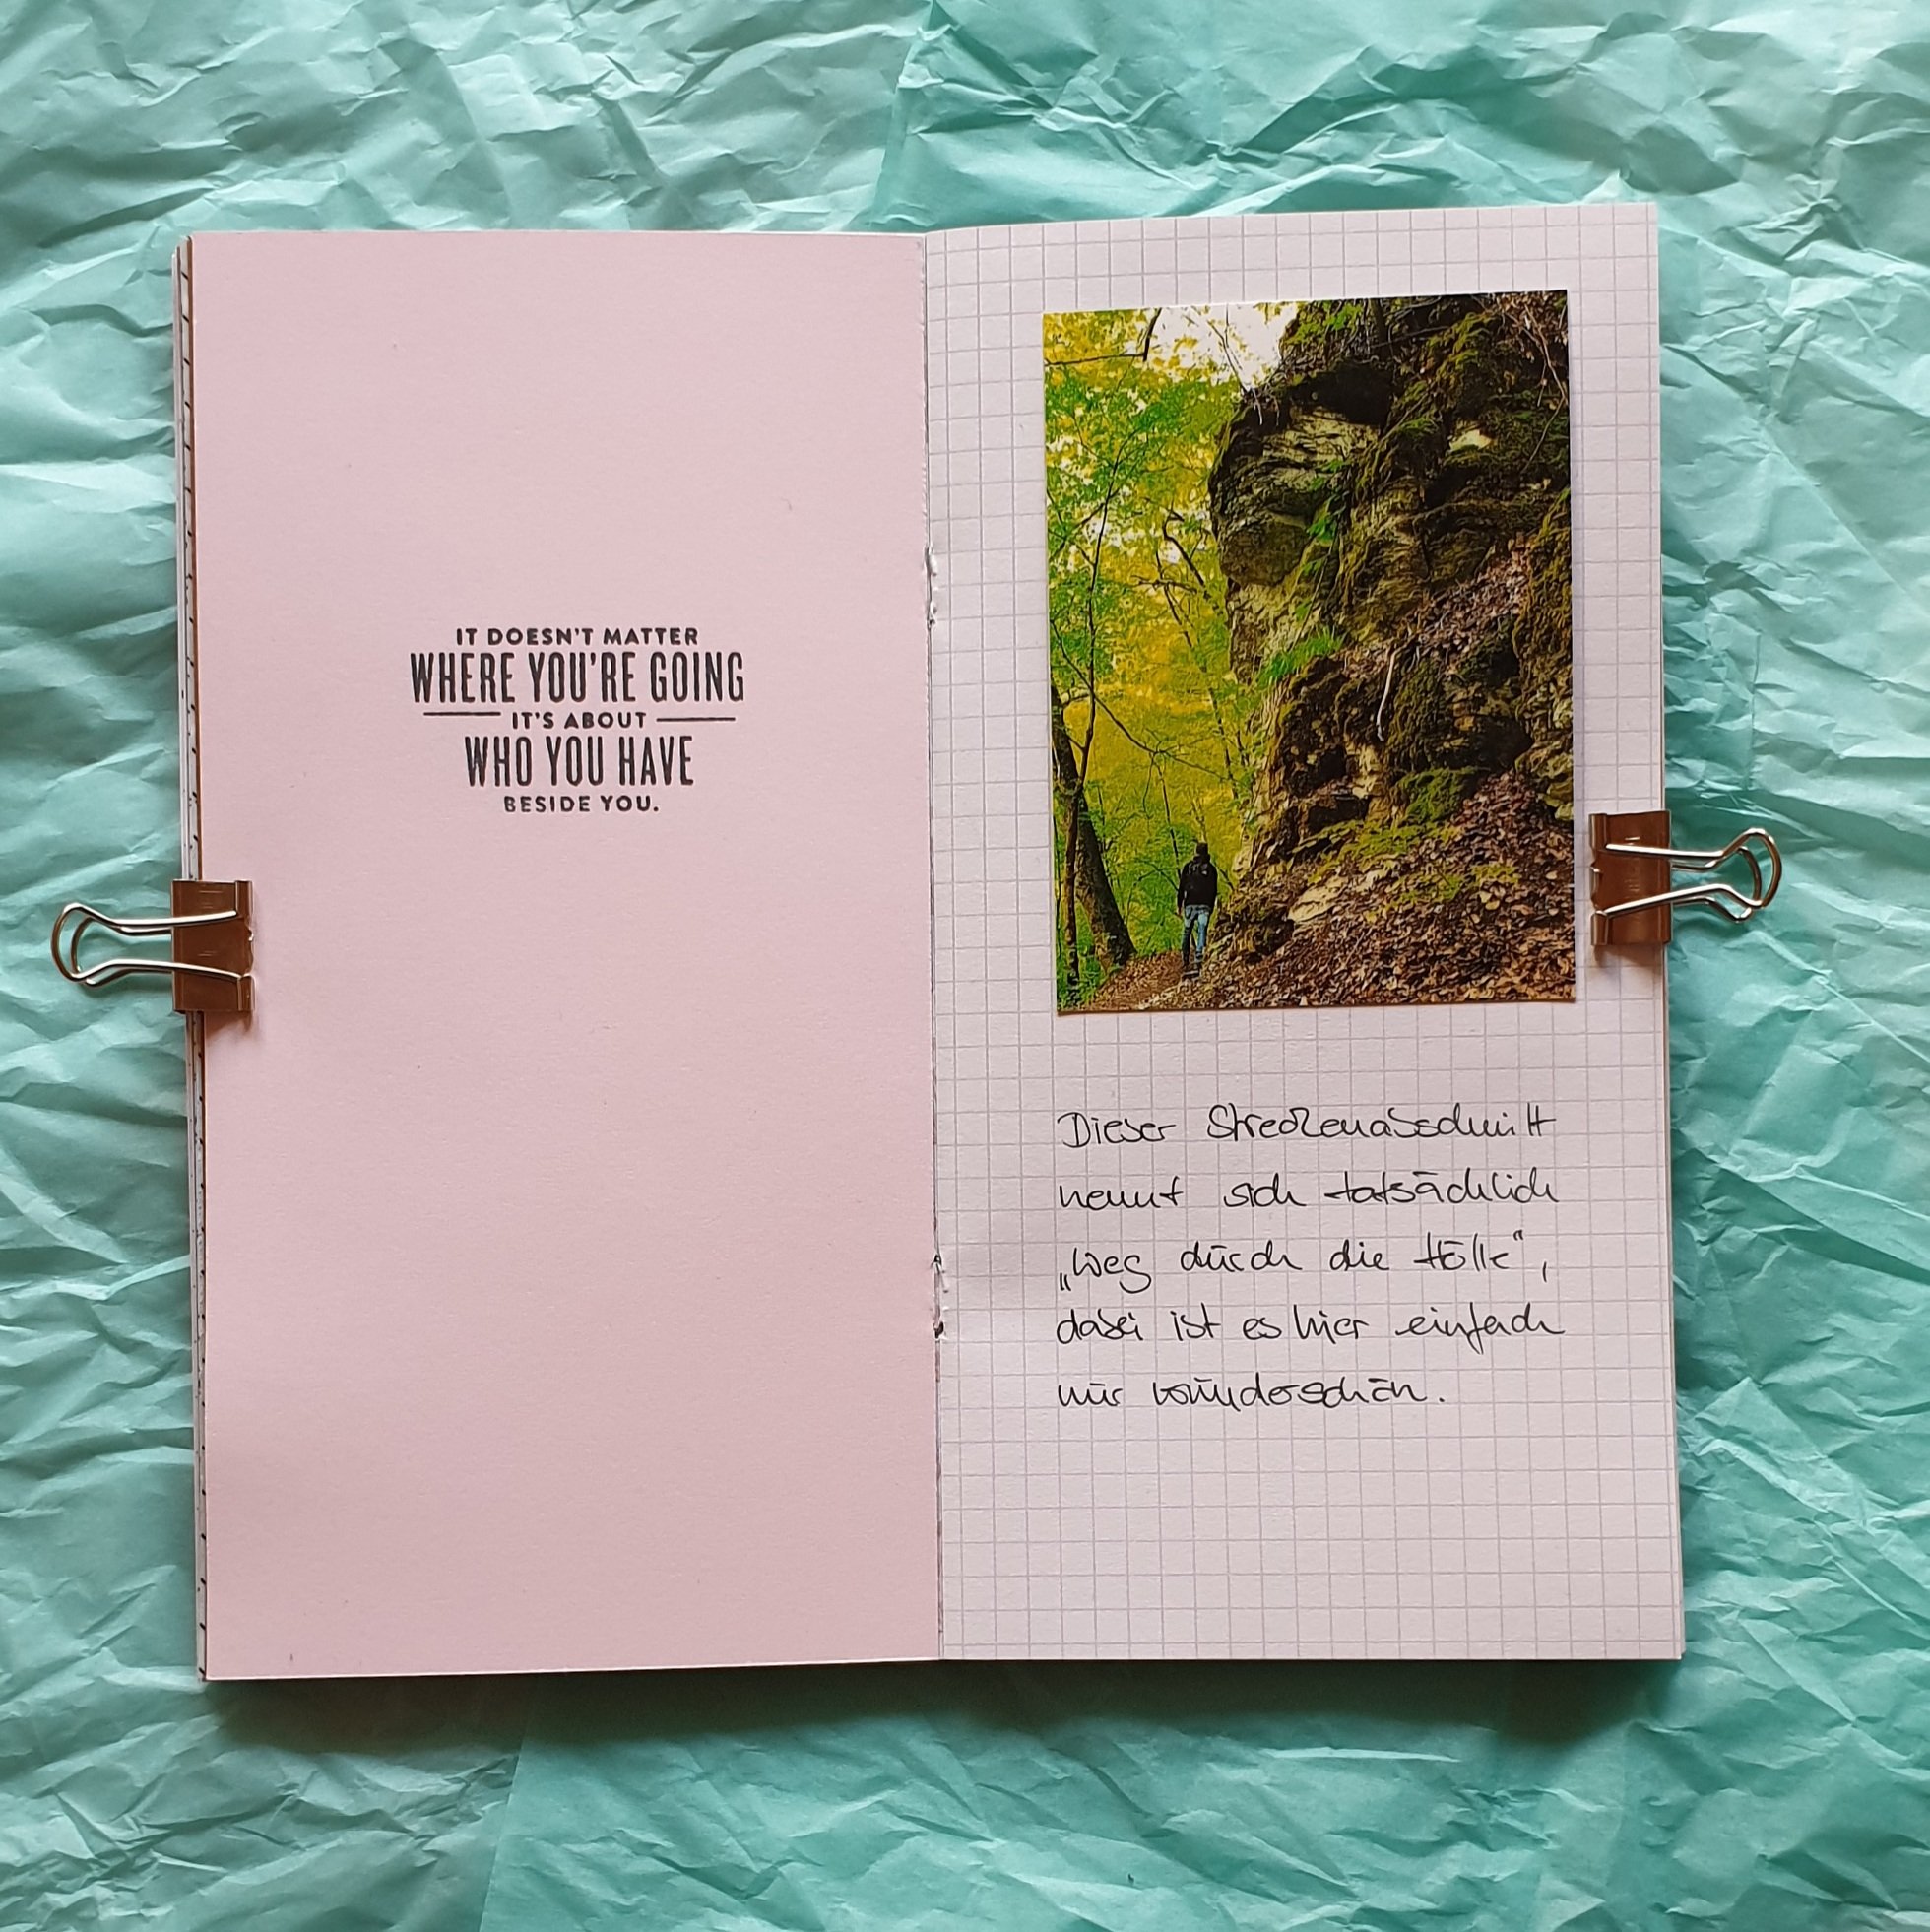 IT DOESN'T MATTER
WHERE YOU'RE GOING
IT'S ABOUT
WHO YOU HAVE
BESIDE YOU.
Dieser Streckenabschnitt
nennt sich tatsächlich
„Weg durch die Hölle“,
dabei ist es hier einfach
nur wunderschön.